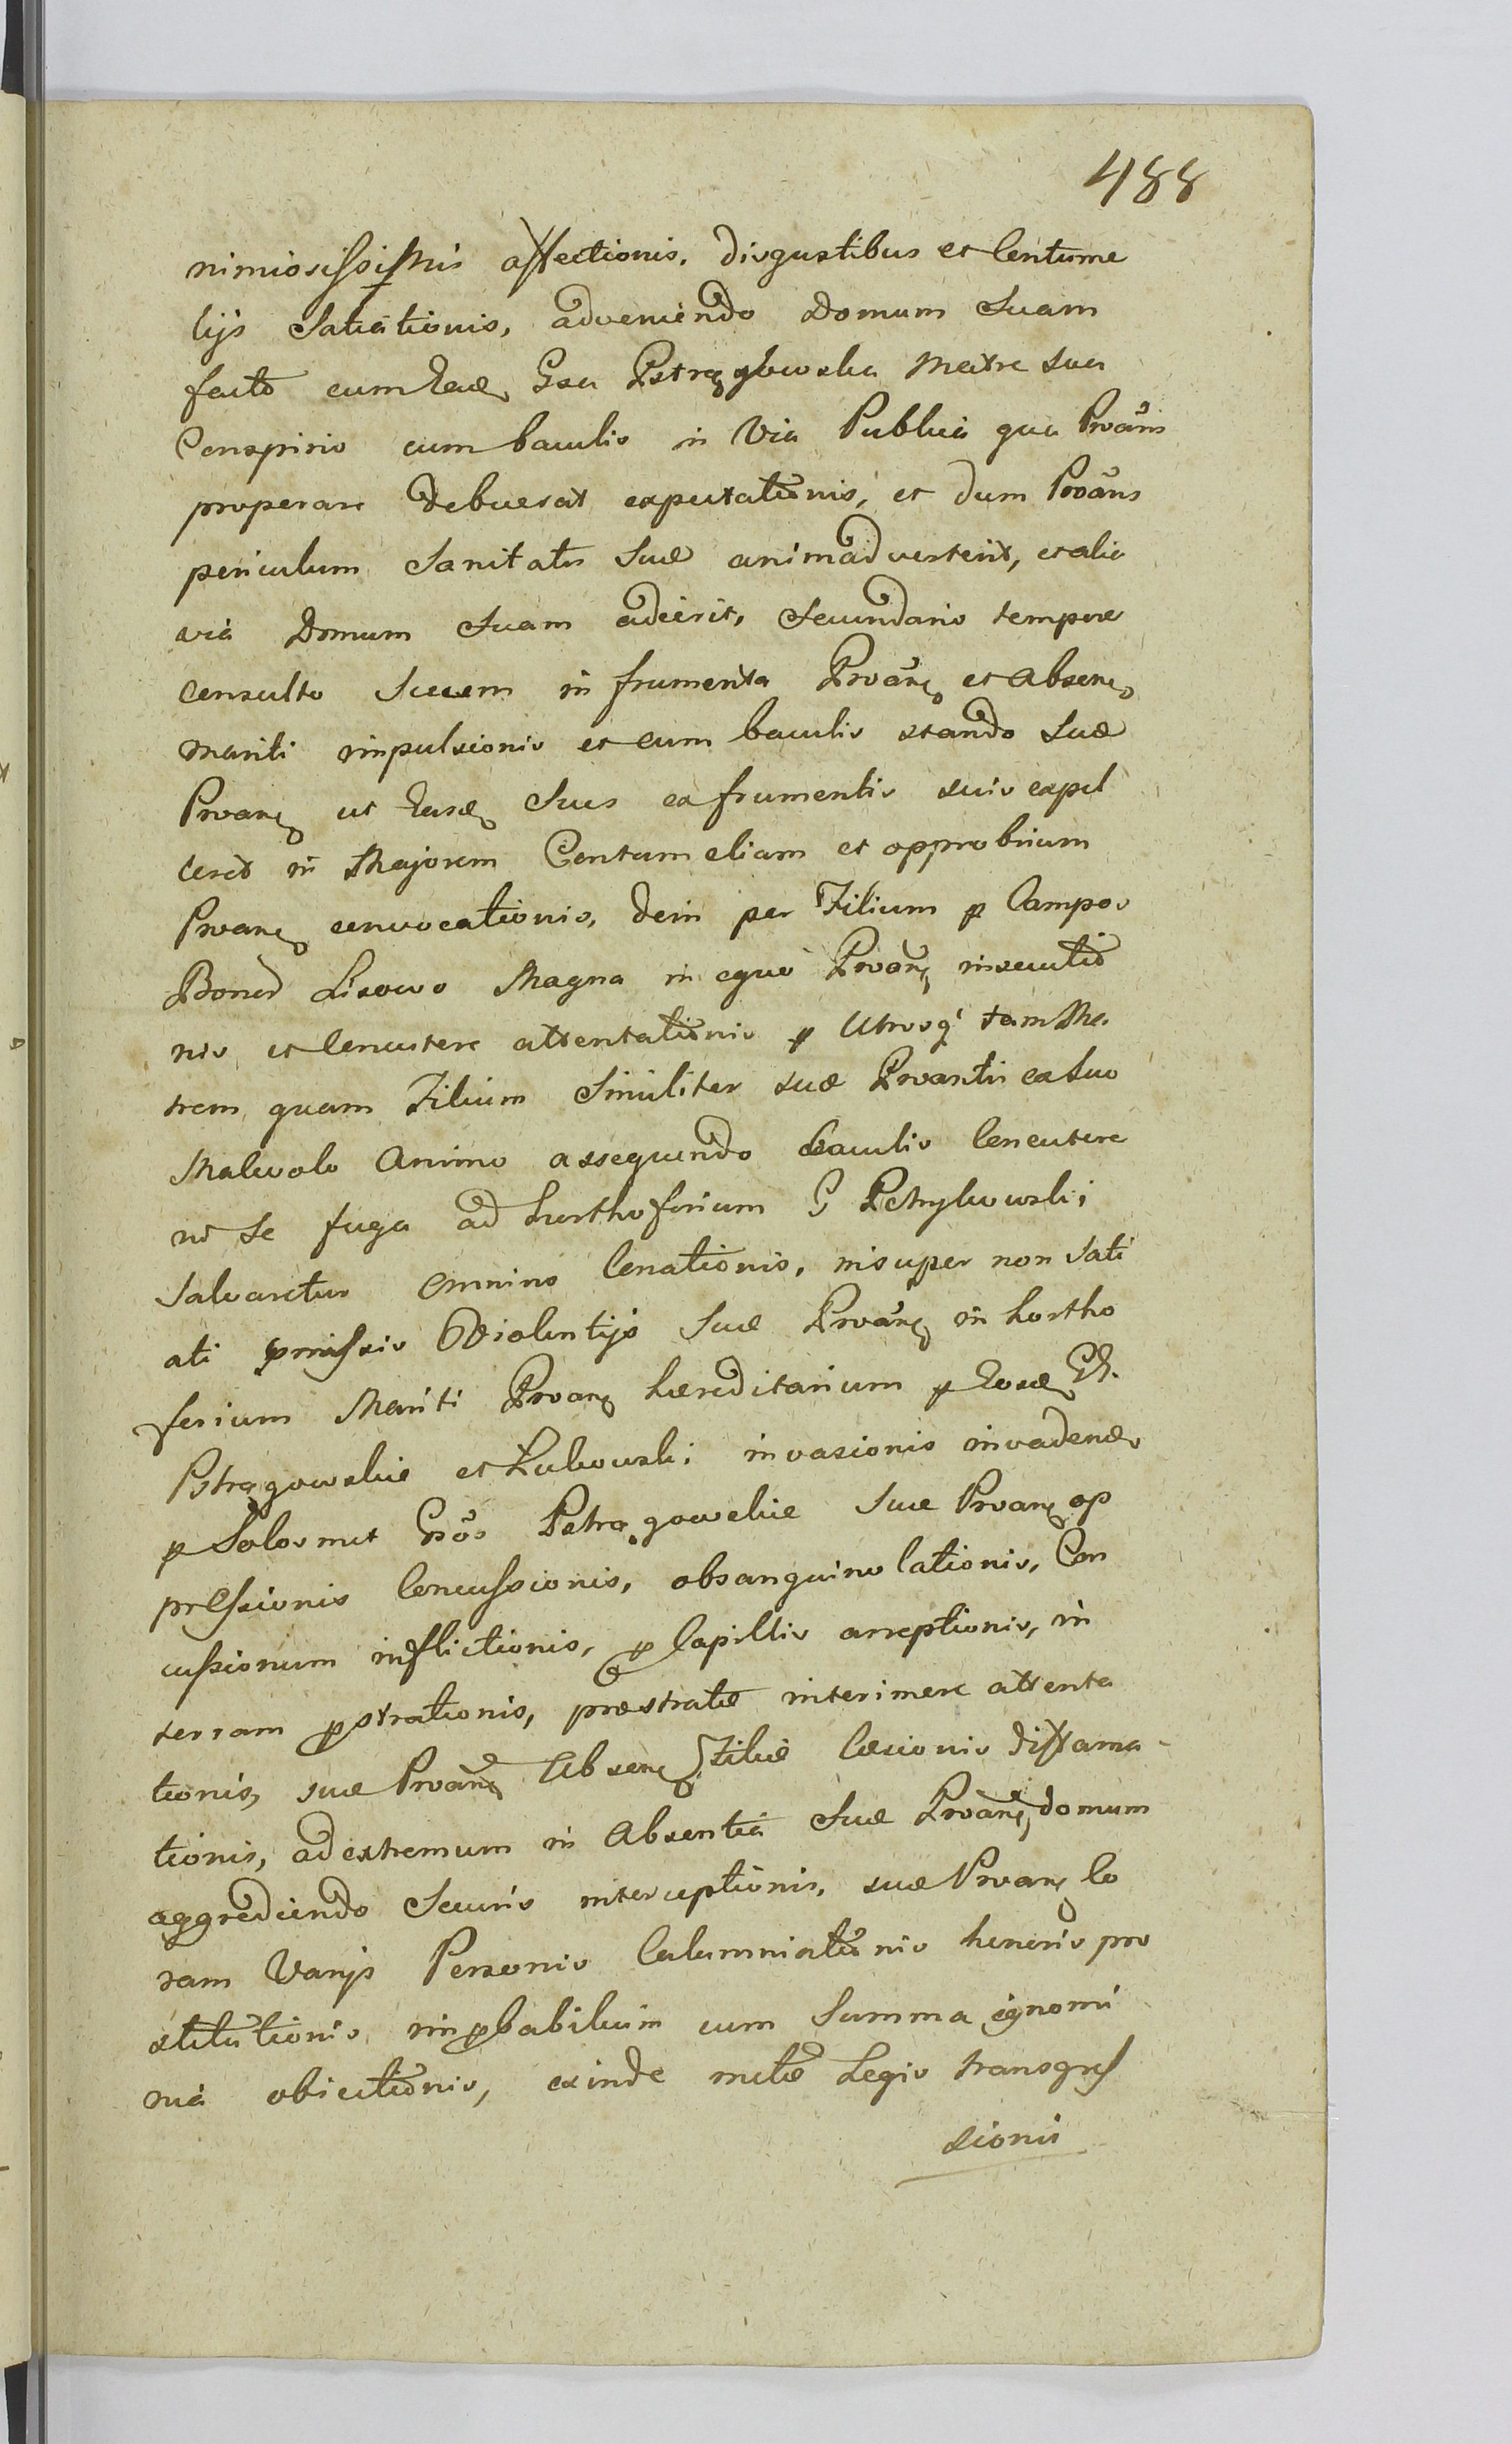 488
nimiosissimis affectionis, disgustibus et Contume
lijs Satiationis, adveniendo Domum Suam
facto cum Gsa Pstrągowska Matre sua
Conspirio cum baculis in Via Publica qua Proãns
properare debuerat expectationis, et dum Proãns
periculum Sanitatis Suæ animadverterit, et alia
via Domum Suam adierit, Secundario tempore
consulto Suem in frumenta Proãntis et Absen
Mariti impulsionis et cum baculis stando Suæ
Proan ut Suas ex frumentis suis expel
leret in Majorem Contumeliam et opprobrium
Proan convocationis, dein per Filium p Campos
Bonor Lisowo Magna in equo Proãn insecutio
nis et Concutere attentationis p Utrosq tam Ma
trem quam Filium Similiter suæ Proantis ex Suo
Malevolo Animo assequendo baculis Concutere
ni Se fuga ad horthoferium G Petrykowski
Salvaretur Omnino Conationis, insuper non Sati
ati pmissis Violentijs Suæ Proãn in hortho
ferium Mariti Proan hæreditarium p Eosd GG.
Pstrągowskie et Łukowski invasionis invadend
p Solosmet Gsos Pstrągowskie Suæ Proan op
pressionis Concussionis, obsanguinolationis, Con
cussionum inflictionis, p Capillis arreptionis, in
terram pstrationis, prostratæ interimere attenta
tionis, suæ Proãn Absen Filiæ læsionis diffama-
tionis, ad extremum in Absentia Suæ Proãn domum
aggrediendo Securis interceptionis, suæ Proan co
ram Varijs Personis Calumniationis honoris pro
stitutionis improbabilium cum Summa ignomi
nia obiectionis, exinde Legis transgres
sionis